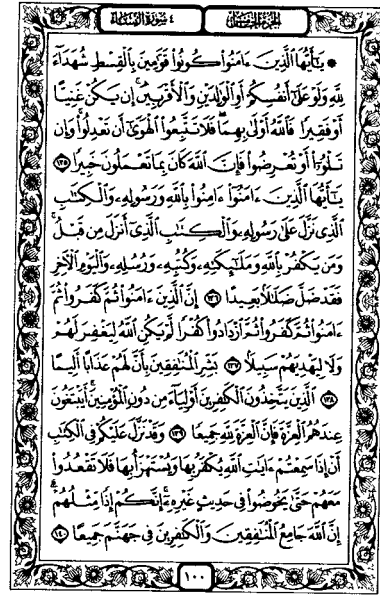 الجزء الخامس ٤ سورة النساء
۞ يَٰٓأَيُّهَا ٱلَّذِينَ ءَامَنُوا۟ كُونُوا۟ قَوَّٰمِينَ بِٱلْقِسْطِ شُهَدَآءَ
لِلَّهِ وَلَوْ عَلَىٰٓ أَنفُسِكُمْ أَوِ ٱلْوَٰلِدَيْنِ وَٱلْأَقْرَبِينَ ۚ إِن يَكُنْ غَنِيًّا
أَوْ فَقِيرًا فَٱللَّهُ أَوْلَىٰ بِهِمَا ۖ فَلَا تَتَّبِعُوا۟ ٱلْهَوَىٰٓ أَن تَعْدِلُوا۟ ۚ وَإِن
تَلْوُۥٓا۟ أَوْ تُعْرِضُوا۟ فَإِنَّ ٱللَّهَ كَانَ بِمَا تَعْمَلُونَ خَبِيرًا ١٣٥
يَٰٓأَيُّهَا ٱلَّذِينَ ءَامَنُوٓا۟ ءَامِنُوا۟ بِٱللَّهِ وَرَسُولِهِۦ وَٱلْكِتَٰبِ
ٱلَّذِى نَزَّلَ عَلَىٰ رَسُولِهِۦ وَٱلْكِتَٰبِ ٱلَّذِىٓ أَنزَلَ مِن قَبْلُ ۚ
وَمَن يَكْفُرْ بِٱللَّهِ وَمَلَٰٓئِكَتِهِۦ وَكُتُبِهِۦ وَرُسُلِهِۦ وَٱلْيَوْمِ ٱلْءَاخِرِ
فَقَدْ ضَلَّ ضَلَٰلًۢا بَعِيدًا ١٣٦ إِنَّ ٱلَّذِينَ ءَامَنُوا۟ ثُمَّ كَفَرُوا۟ ثُمَّ
ءَامَنُوا۟ ثُمَّ كَفَرُوا۟ ثُمَّ ٱزْدَادُوا۟ كُفْرًا لَّمْ يَكُنِ ٱللَّهُ لِيَغْفِرَ لَهُمْ
وَلَا لِيَهْدِيَهُمْ سَبِيلًۢا ١٣٧ بَشِّرِ ٱلْمُنَٰفِقِينَ بِأَنَّ لَهُمْ عَذَابًا أَلِيمًا
١٣٨ ٱلَّذِينَ يَتَّخِذُونَ ٱلْكَٰفِرِينَ أَوْلِيَآءَ مِن دُونِ ٱلْمُؤْمِنِينَ ۚ أَيَبْتَغُونَ
عِندَهُمُ ٱلْعِزَّةَ فَإِنَّ ٱلْعِزَّةَ لِلَّهِ جَمِيعًا ١٣٩ وَقَدْ نَزَّلَ عَلَيْكُمْ فِى ٱلْكِتَٰبِ
أَنْ إِذَا سَمِعْتُمْ ءَايَٰتِ ٱللَّهِ يُكْفَرُ بِهَا وَيُسْتَهْزَأُ بِهَا فَلَا تَقْعُدُوا۟
مَعَهُمْ حَتَّىٰ يَخُوضُوا۟ فِى حَدِيثٍ غَيْرِهِۦٓ ۚ إِنَّكُمْ إِذًا مِّثْلُهُمْ ۗ
إِنَّ ٱللَّهَ جَامِعُ ٱلْمُنَٰفِقِينَ وَٱلْكَٰفِرِينَ فِى جَهَنَّمَ جَمِيعًا ١٤٠
١٠٠